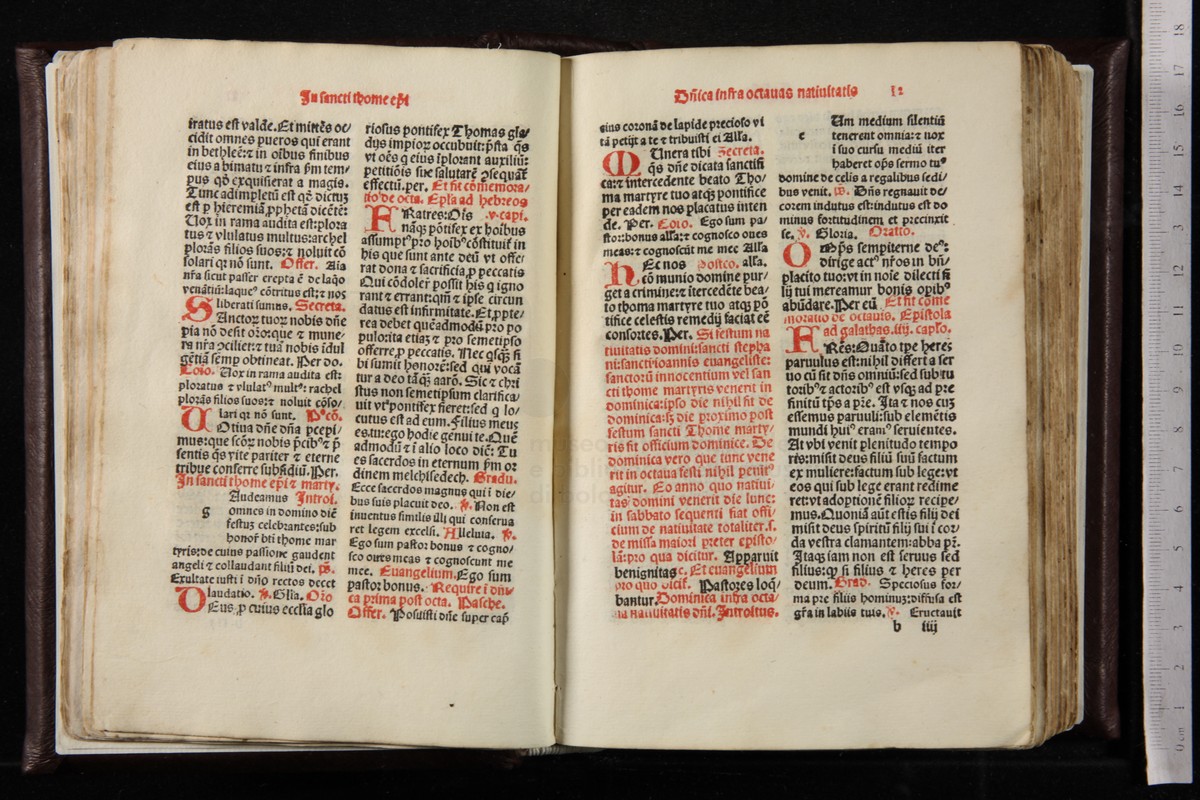 In sancti thome ep̄i
iratus est valde. Et mittēs oc/
cidit omnes pueros qui erant
in bethleē: ⁊ in oībus finibus
eius a bimatu ⁊ infra ꝑm tem/
pus qd̄ exquisierat a magis.
Tunc adimpletū est qd̄ dictuȝ
est ꝑ hieremiā ꝓphetā dicētē:
Uox in rama audita est: plora
tus ⁊ vlulatus multus: rachel
plorās filios suos: ⁊ noluit cō
solari qꝛ nō sunt. Offer. Aīa
nr̄a sicut passer erepta ē de laq̄o
venātiū: laque⁹ cōtritus est: ⁊ nos
liberati sumus. Secreta.
SAnctoꝝ tuoꝝ nobis dn̄e
pia nō desit or̄o: que ⁊ mune/
ra nr̄a ꝯciliet: ⁊ tuā nobis īdul
gētiā semp obtineat. Per do.
Cōio. Uox in rama audita est:
ploratus ⁊ vlulat⁹ mult⁹: rachel
plorās filios suos: ⁊ noluit cōso/
lari qꝛ nō sunt. Pꝰcō.
UOtiua dn̄e dn̄a pcepi/
mus: que scōꝝ nobis p̄cib⁹ ⁊ p̄
sentis q̄s vite pariter ⁊ eterne
tribue conferre subsidiū. Per.
In sancti thome ep̄i ⁊ marty.
Audeamus Introi.
g omnes in domino diē
festuȝ celebrantes: sub
honoꝝ bt̄i thome mar
tyris: de cuius passione gaudent
angeli ⁊ collaudant filiuȝ dei. ps.
Exultate iusti ī dn̄o rectos decet
laudatio. ℣. Glīa. Or̄o
DEus ꝓ cuius ecclīa glo
riosus pontifex Thomas gla/
dijs impioꝝ occubuit: p̄sta q̄s
vt oēs q̄ eius īplorant auxiliū:
petitiōis sue salutarē ꝯsequāt̄
effectū. per. Et fit cōmemora/
tio de octa. Epl̄a ad hebreos
FRatres: Oīs .v. capi.
nāqȝ pōtifex ex hoībus
assumpt⁹ ꝓ hoīb⁹ cōstituit̄ in
his que sunt ante deū vt offe/
rat dona ⁊ sacrificia ꝓ peccatis
Qui cōdolere possit his q igno
rant ⁊ errant: qm̄ ⁊ ipse circun
datus est infirmitate. Et ꝓpte/
rea debet quēadmodū ꝓ po
pulo: ita etiaȝ ⁊ pro semetipso
offerre ꝓ peccatis. Nec qsqȝ si
bi sumit honorē: sed qui voca
tur a deo tāqȝ aarō. Sic ⁊ chri
stus non semetipsum clarifica/
uit vt pontifex fieret: sed q lo/
cutus est ad eum. Filius meus
es tu: ego hodie genui te. Quē
admodū ⁊ ī alio loco diē: Tu
es sacerdos in eternum ꝑm or
dinem melchisedech. Gradu.
Ecce sacerdos magnus qui ī die/
bus suis placuit deo. ℣. Non est
inuentus similis illi qui conserua
ret legem excelsi. Alleluia. ℣.
Ego sum pastor bonus ⁊ cogno/
sco oues meas ⁊ cognoscunt me
mee. Euangelium. Ego sum
pastor bonus. Require ī dn̄i/
ca prima post octa. Pasche.
Offer. Posuisti dn̄e super cap̄
Dn̄ica infra octauas natiuitatis 12
eius coronā de lapide precioso vi
tā petijt a te ⁊ tribuisti ei Alla.
MUnera tibi Secreta.
q̄s dn̄e dicata sanctifi
ca: ⁊ intercedente beato Tho/
ma martyre tuo atqȝ pontifice
per eadem nos placatus inten
de. Per. Cōio. Ego sum pa/
stor: bonus alla: ⁊ cognosco oues
meas: ⁊ cognoscūt me mee Alla
HEc nos postco. alla.
cō munio domine pur/
get a crimine: ⁊ itercedēte bea/
to thoma martyre tuo atqȝ pō
tifice celestis remedij faciat eē
consortes. Per. Si festum na
tiuitatis domini: sancti stepha
ni: sancti ioannis euangeliste:
sanctorū innocentium vel san
cti thome martyris venerit in
dominica: ipso die nihil fit de
dominica: sȝ die proximo post
festum sancti Thome marty/
ris fit officium dominice. De
dominica vero que tunc vene
rit in octaua festi nihil penit⁹
agitur. Eo anno quo natiui/
tas domini venerit die lune:
in sabbato sequenti fiat offi/
cium de natiuitate totaliter. s.
de missa maiori preter episto/
lā: pro qua dicitur. Apparuit
benignitas ⁊c. Et euangelium
pro quo dicit̄. Pastores loq̄/
bantur. Dominica infra octa/
ua natiuitatis dn̄i. Introitus.
Um medium silentiū
e tenerent omnia: ⁊ nox
ī suo cursu mediū iter
haberet op̄s sermo tu⁹
domine de celis a regalibus sedi/
bus venit. ps. Dn̄s regnauit de/
corem indutus est: indutus est do
minus fortitudinem et precinxit
se. ℣. Gloria. Oratio.
OMp̄s sempiterne de⁹:
dirige act⁹ nr̄os in bn̄
placito tuo: vt in noīe dilecti fi
lij tui mereamur bonis opib⁹
abūdare. Per eū. Et fit cōme
moratio de octauis. Epistola
ad galathas. iiij. capl̄o.
FRēs: Quāto tp̄e heres
paruulus est: nihil differt a ser
uo cū sit dn̄s omniū: sed sub tu
torib⁹ ⁊ actorib⁹ est vsqȝ ad pre
finitū tp̄s a pr̄e. Ita ⁊ nos cuȝ
essemus paruuli: sub elemētis
mundi hui⁹ eram⁹ seruientes.
At vbi venit plenitudo tempo
ris: misit deus filiū suū factum
ex muliere: factum sub lege: vt
eos qui sub lege erant redime
ret: vt adoptionē filioꝝ recipe/
mus. Quoniā aūt estis filij dei
misit deus spiritū filij sui ī cor/
da vestra clamantem: abba pr̄.
Itaqȝ iam non est seruus sed
filius: qȝ si filius ⁊ heres per
deum. Grad. Speciosus for/
ma pre filiis hominuȝ: diffusa est
gr̄a in labiis tuis. ℣. Eructauit
b iiij